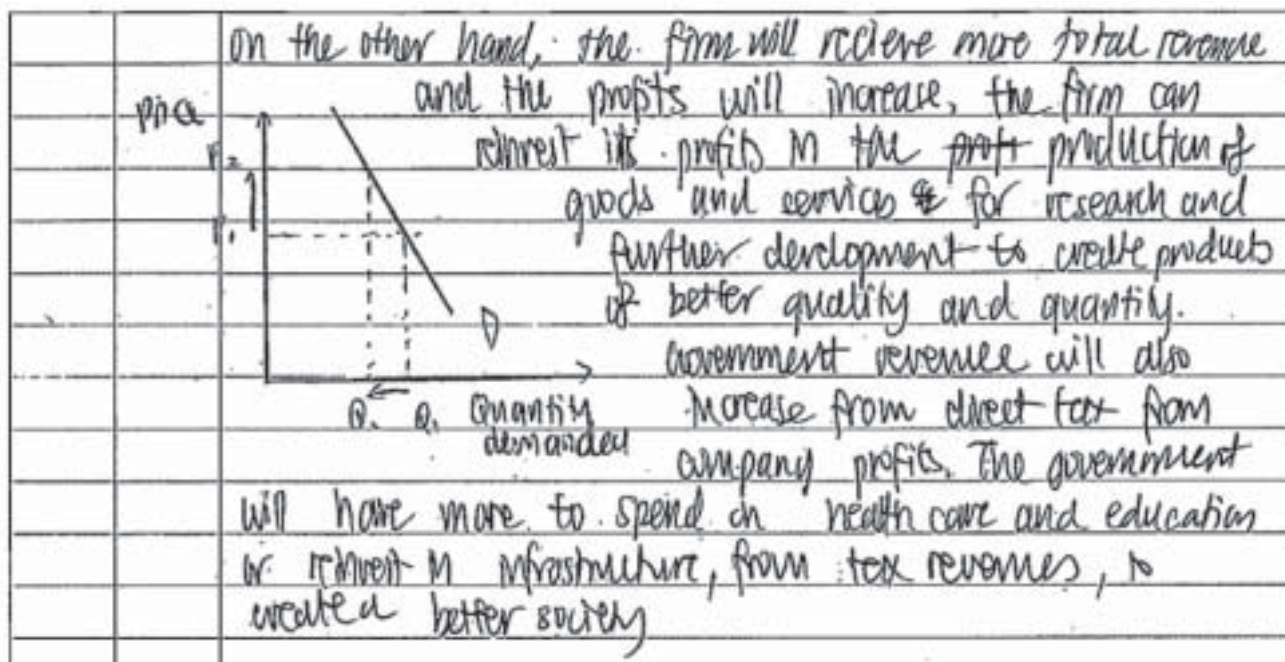 on the other hand, the firm will recieve more total revenue
and the profits will increase, the firm can
Price
reinvest its profits in the proft production of
P₂
goods and services for research and
P₁
further development to create products
of better quality and quantity.
D
Government revenue will also
increase from direct tax from
Q₂ Q₁ Quantity
demanded
company profits. The government
will have more to spend on health care and education
or reinvest in infrastructure, from tax revenues, to
create a better society